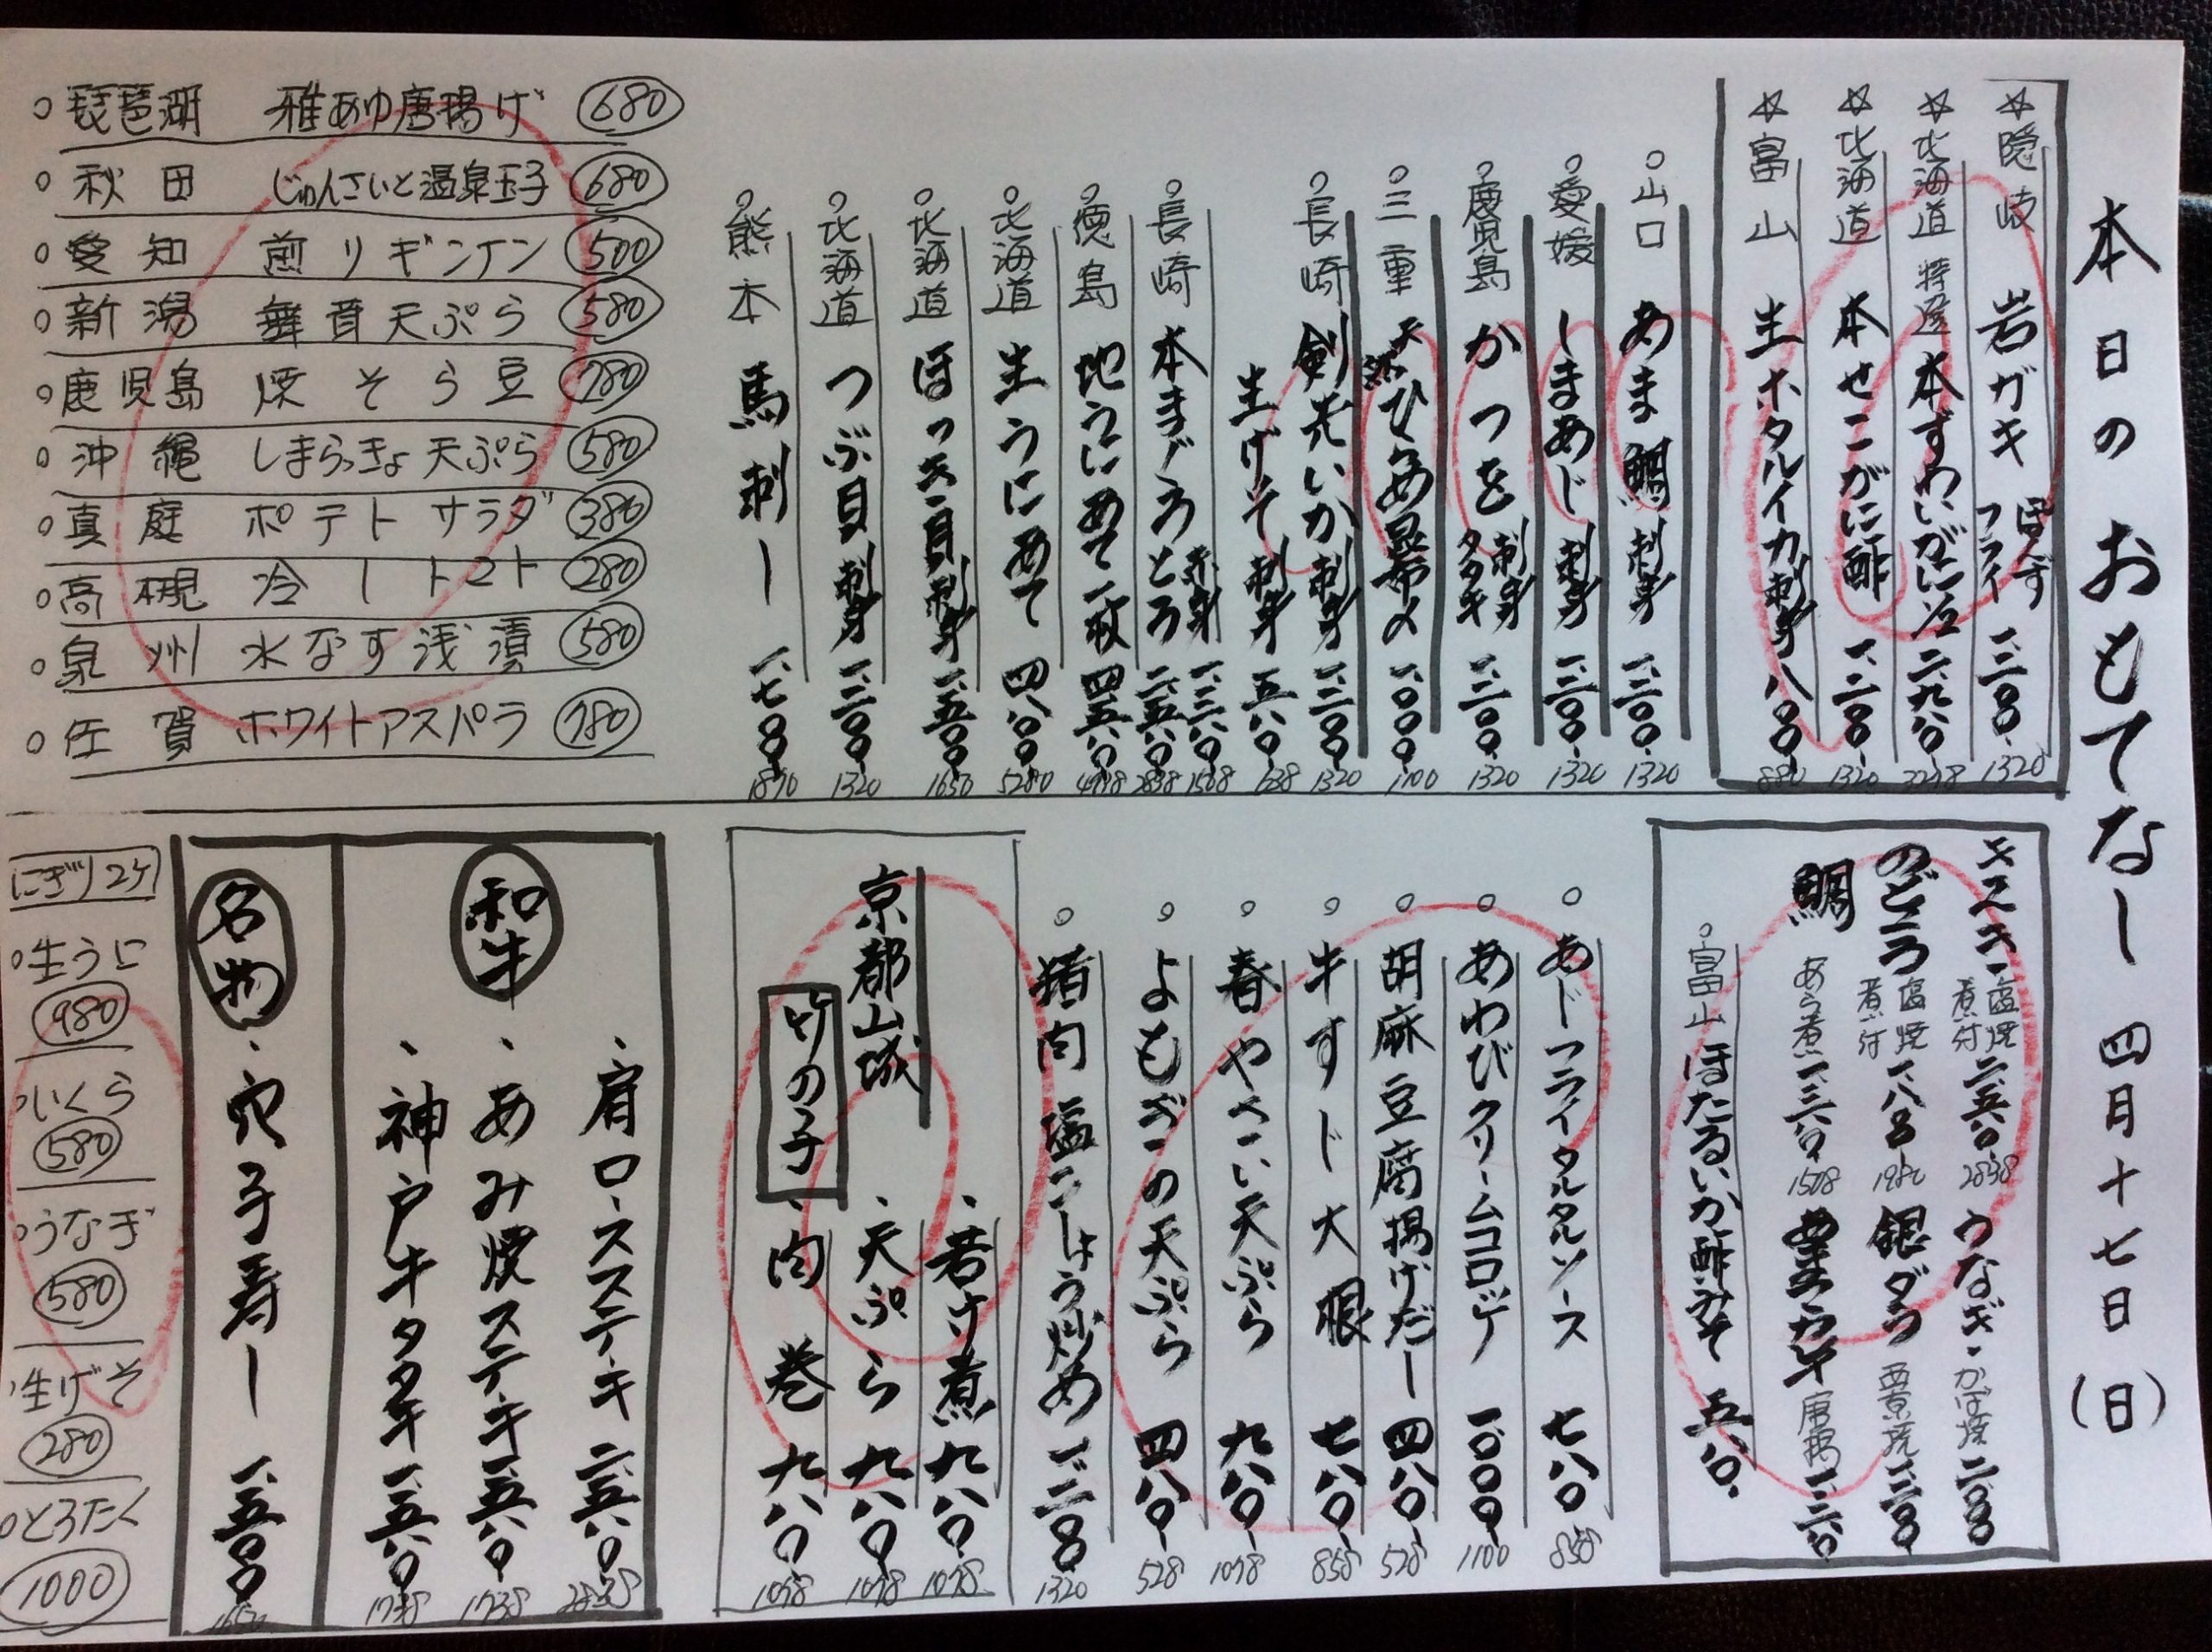 本日のおもてなし 四月十七日(日)
☆隠岐 岩ガキ ぽんず フライ 一、二〇〇 1320
☆北海道 特選 本ずわいがに 二、九八〇 3278
☆北海道 本せこがに酢 一、二〇〇 1320
☆富山 生ホタルイカ刺身 八〇〇 880
○山口 あま鯛 刺身 一、二〇〇 1320
○愛媛 しまあじ 刺身 一、二〇〇 1320
○鹿児島 かつを 刺身 タタキ 一、二〇〇 1320
○三重 天然ひらめ昆布〆 一、〇〇〇 1100
○長崎 剣先いか刺身 一、二〇〇 1320
生げそ刺身 五八〇 638
○長崎 本まぐろ 赤身 一、三八〇 1508
とろ 二、五八〇 2838
○徳島 地うにあて一枚 四、五八〇
○北海道 生うにあて 四、八〇〇 5280
○北海道 ほっき貝刺身 一、五〇〇 1650
○北海道 つぶ貝刺身 一、二〇〇 1320
○熊本 馬刺し 一、七〇〇 1870
○琵琶湖 雅あゆ唐揚げ 680
○秋田 じゅんさいと温泉玉子 680
○愛知 煎りギンナン 500
○新潟 舞茸天ぷら 580
○鹿児島 焼そら豆 780
○沖縄 しまらっきょ天ぷら 580
○真庭 ポテトサラダ 380
○高槻 冷しトマト 280
○泉州 水なす浅漬 580
○佐賀 ホワイトアスパラ 780
キンキ 塩焼 煮付 二、五八〇 2838 うなぎ かば焼 二、二〇〇
のどぐろ 塩焼 煮付 一、八〇〇 1980 銀ダラ 西京焼 一、二〇〇
鯛 あら煮 一、三八〇 1508 唐揚
○富山 ほたるいか酢みそ 五八〇
○あじフライタルタルソース 七八〇 858
○あわびクリームコロッケ 一、〇〇〇 1100
○胡麻豆腐揚げだし 四八〇 528
○牛すじ大根 七八〇 858
○春やさい天ぷら 九八〇 1078
○よもぎの天ぷら 四八〇 528
○猪肉 塩こしょう炒め 一、二〇〇 1320
京都山城 竹の子
、若竹煮 九八〇 1078
、天ぷら 九八〇 1078
、肉巻 九八〇 1078
和牛
、肩ロースステーキ 二、五八〇 2838
、あみ焼ステーキ 一、五八〇 1738
、神戸牛タタキ 一、五八〇 1738
名物 、穴子寿し 一、五〇〇 1650
にぎり2ケ
○生うに 980
○いくら 580
○うなぎ 580
○生げそ 280
○とろたく 1000